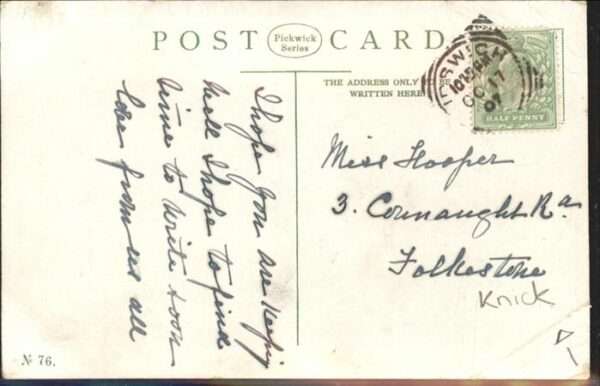 POST CARD
Pickwick
Series
THE ADDRESS ONLY TO BE
WRITTEN HERE
IPSWICH
OC 17
07
HALF PENNY
I hope you are keeping
well I hope to find
time to write soon
Love from us all
Miss Hooper
3. Connaught Rd
Folkestone
Knick
№ 76.